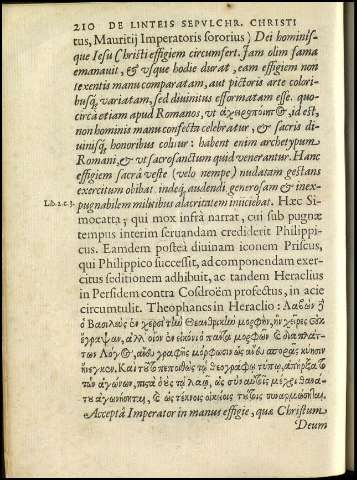 210 DE LINTEIS SEPVLCHR. CHRISTI
tus, Mauritij Imperatoris sororius) Dei hominis-
que Iesu Christi effigiem circumfert. Jam olim fama
emanauit, & vsque hodie durat, eam effigiem non
textentis manu comparatam, aut pictoris arte colori-
busq́; variatam, sed diuinitus efformatam esse. quo-
circa etiam apud Romanos, vt ἀχειροποίητος, id est,
non hominis manu confecta celebratur, & sacris di-
uinisq́; honoribus colitur: habent enim archetypum
Romani, & vt sacrosanctum quid venerantur. Hanc
effigiem sacra veste (velo nempe) nudatam gestans
exercitum obibat. indeq́; audendi generosam & inex-
Lib. 2. c. 3. pugnabilem militibus alacritatem iniiciebat. Hæc Si-
mocatta; qui mox infrà narrat, cui sub pugnæ
tempus interim seruandam crediderit Philippi-
cus. Eamdem posteà diuinam iconem Priscus,
qui Philippico successit, ad componendam exer-
citus seditionem adhibuit, ac tandem Heraclius
in Persidem contra Cosdroëm profectus, in acie
circumtulit. Theophanes in Heraclio: Λαβὼν ἢ
ὁ Βασιλεὺς ἐν χερσὶ τὴν Θεανδρικὴν μορφὴν, ἣν χεῖρες οὐκ
ἔγραψαν, ἀλλ' οἷον ἐν εἰκόνι ὁ πάντα μορφῶν & διαπλάτ-
των Λόγος, ἄνευ γραφῆς μόρφωσιν ὡς ἄνευ σπορᾶς κύησιν
ἤνεγκεν. Καὶ τούτῳ πεποιθὼς τῷ θεογράφῳ τύπῳ, ἀπήρξατο
τῶν ἀγώνων, πιστὰ δοὺς τῷ λαῷ, ὡς σὺν αὐτοῖς μέχρι θανά-
του ἀγωνήσηται, & ὡς τέκνοις οἰκείοις τούτοις συναρμόσηται.
Acceptâ Imperator in manus effigie, quæ Christum
Deum